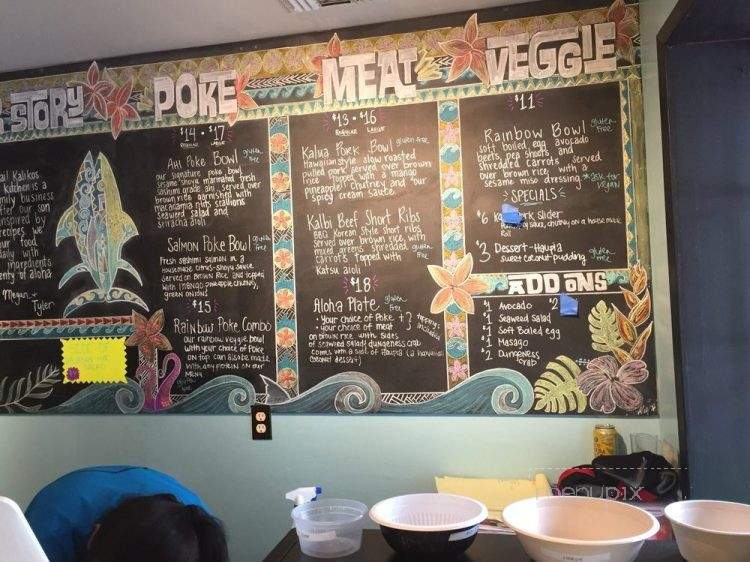 STORY
Kalikos
kitchen is a
family business
after our son
inspired by
recipes we
our food
daily with
ingredients
plenty of aloha
Megan +
Tyler
POKE
$14 · $17
REGULAR LARGE
Ahi Poke Bowl
gluten free
our signature poke bowl
sesame shoyu marinated fresh
sashimi grade ahi, served over
brown rice garnished with
macadamia nuts scallions
seaweed salad and
sriracha aioli
Salmon Poke Bowl
gluten free
Fresh sashimi salmon in a
housemade citrus-shoyu sauce
served on Brown Rice and topped
with mango pineapple chutney,
green onions
$15
Rainbow Poke Combo
our rainbow veggie bowl
with your choice of Poke
on top can also be made
with any protein on our
menu
gluten free
MEAT
$13 · $16
REGULAR LARGE
Kalua Pork Bowl
gluten free
Hawaiian style slow roasted
pulled pork served over brown
rice topped with a mango
pineapple chutney and our
spicy cream sauce.
Kalbi Beef Short Ribs
BBQ Korean style short ribs
served over brown rice, with
mixed greens shredded
carrots topped with
Katsu aioli
gluten free
$18
Aloha Plate
gluten free
• Your choice of Poke +
• Your choice of meat
on brown rice with sides
of seaweed salad/dungeness crab
comes with a side of Haupia (a hawaiian
coconut dessert)
2 toppings included
VEGGIE
$11
Rainbow Bowl
gluten Free
soft boiled egg avocado
beets, pea shoots, and
shredded carrots served
over brown rice, with a
sesame miso dressing
*ask for vegan
SPECIALS
$6
Slider
sauce, chutney on a house made
roll
$3 Dessert - Haupia
gluten free
sweet coconut pudding
ADD ONS
$1 Avocado $2
$1 Seaweed Salad
$1 Soft Boiled egg
$1 Masago
$2 Dungeness
crab
menupix